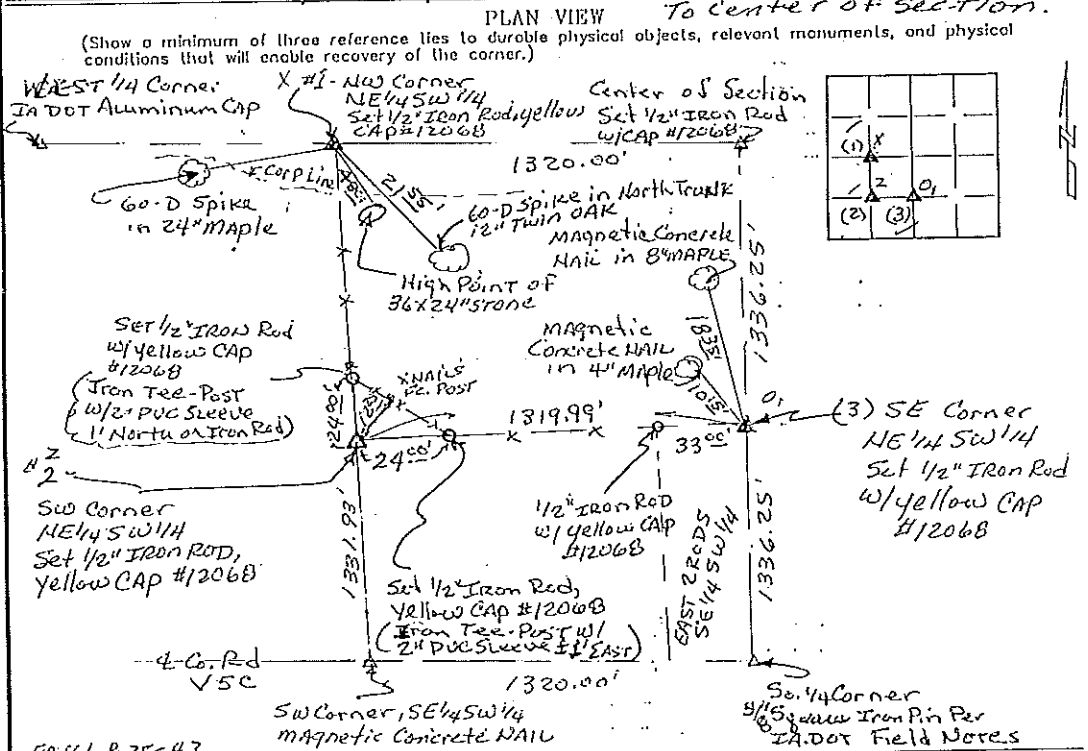 PLAN VIEW To Center of Section.
(Show a minimum of three reference ties to durable physical objects, relevant monuments, and physical
conditions that will enable recovery of the corner.)
WEST 1/4 Corner
IA DOT Aluminum CAP
X #1 - NW Corner
NE 1/4 SW 1/4
Set 1/2" Iron Rod, yellow
CAP #12068
Center of Section
Set 1/2" Iron Rod
w/CAP #12068
1320.00'
(1) X
2 O,
(2) (3)
N
Corp Line
60-D Spike
in 24" MAPLE
21.55'
60-D Spike in North Trunk
12" Twin OAK
High Point of
36x24" Stone
Magnetic Concrete
NAIL in 8" MAPLE
1336.25'
18.35'
Set 1/2" IRON Rod
w/yellow CAP
#12068
(Iron Tee-Post
w/2" PVC Sleeve
1' North of Iron Rod)
24.00'
X NAILS
Fc. Post
Magnetic
Concrete NAIL
in 4" Maple
10.15'
O,
1319.99'
24.00'
33.00'
(3) SE Corner
NE 1/4 SW 1/4
Set 1/2" Iron Rod
w/yellow CAP
#12068
# 2
SW Corner
NE 1/4 SW 1/4
Set 1/2" IRON ROD,
Yellow CAP #12068
1331.93'
1/2" IRON ROD
w/yellow CAP
#12068
Set 1/2" Iron Rod,
Yellow CAP #12068
(Iron Tee-Post w/
2" PVC Sleeve ±1' EAST)
EAST 2 RODS
SE 1/4 SW 1/4
1336.25'
Co. Rd
V5C
1320.00'
SW Corner, SE 1/4 SW 1/4
Magnetic Concrete NAIL
So. 1/4 Corner
Square Iron Pin Per
IA.DOT Field Notes